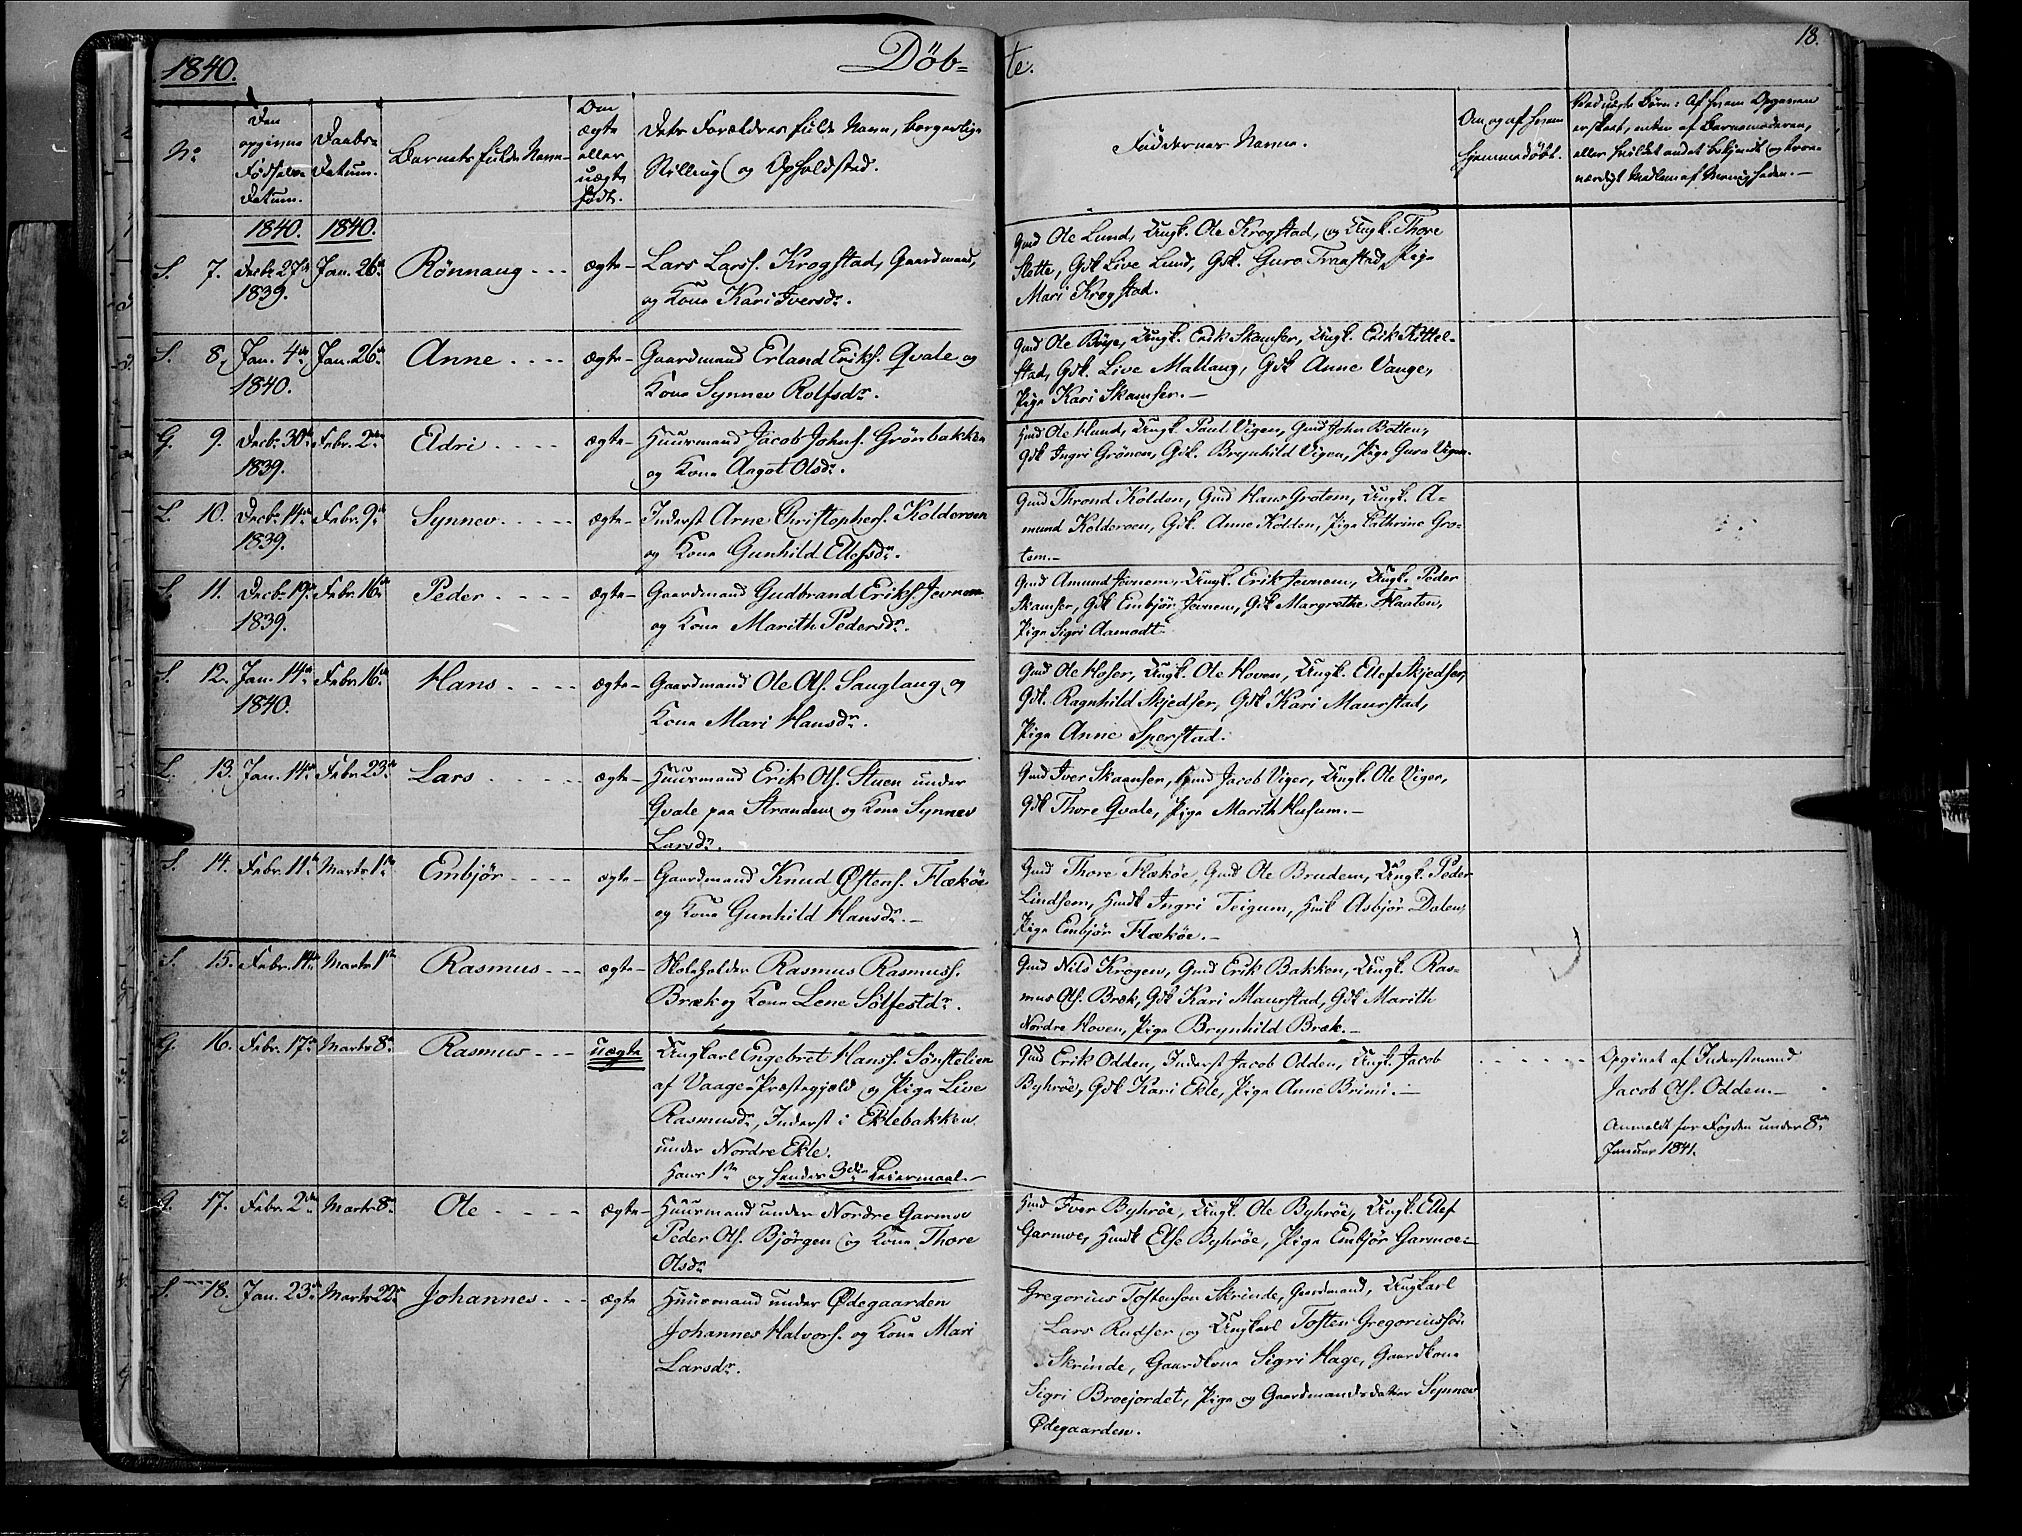 1840.
Döb-
te.
18.
No
Den opgivne Fødsels-Datum.
Daabs-Datum.
Barnets fulde Navn
Om ægte eller uægte født.
Dets Forældres fulde Navn, borgerlige Stilling og Opholdsted.
Faddernes Navne.
Om og af hvem hjemmedøbt.
Ved uægte Børn: Af hvem Opgaven er skeet, enten af Barnemoderen, eller hvilket andet bekjendt og troværdigt Medlem af Menigheden.
1840. 1840.
S. 7. Decbr 27de 1839. Jan. 26de Rönnaug ægte
Lars Larss. Krogstad, Gaardmand,
og Kone Kari Iversdr.
Gmd Ole Lund, Ungk. Ole Krogstad, og Ungk. Thore
Slette, Gdk Live Lund, Gdk. Guro Transtad, Pige
Mari Krogstad.
S. 8. Jan. 4de 1840. Jan. 26de Anne ægte
Gaardmand Erland Eriks. Qvale og
Kone Synnev Rolfsdr.
Gmd Ole Böye, Ungk. Erik Skamser, Ungk. Erik Kittel-
stad, Gdk. Live Mallang, Gdk Anne Vange,
Pige Kari Skamser.
G. 9. Decbr 30te 1839. Febr. 2den Eldri ægte
Huusmand Jacob Johns. Grönbakken
og Kone Aagot Olsdr.
Hmd Ole Hund, Ungk. Paul Vigen, Gmd John Botten,
Gdk Ingri Grönen, Gdk. Brynhild Vigen, Pige Guro Vigen.
L. 10. Decbr 14de 1839. Febr. 9de Synnev ægte
Inderst Arne Christophers. Kolderoen
og Kone Gunhild Ellefsdr.
Gmd Thrond Kolden, Gmd Hans Grotem, Ungk. A-
mund Kolderoen, Gdk. Anne Kolden, Pige Cathrine Gro-
tem.
S. 11. Decbr 19de 1839. Febr. 16de Peder ægte
Gaardmand Gudbrand Eriks. Jevnem
og Kone Marith Pedersdr.
Gmd Amund Jevnem, Ungk. Erik Jevnem, Ungk. Peder
Skamser, Gdk Embjør Jevnem, Gdk Margrethe Flaaten,
Pige Sigri Aamodt
S. 12. Jan. 14de 1840. Febr. 16de Hans ægte
Gaardmand Ole Ols. Sauglang og
Kone Mari Hansdr.
Gmd Ole Hoser, Ungk. Ole Hoven, Ungk. Ellef Skjedser,
Gdk. Ragnhild Skjedser, Gdk Kari Maurstad,
Pige Anne Sperstad.
L. 13. Jan. 14de Febr. 23de Lars ægte
Huusmand Erik Ols. Stuen under
Qvale paa Stranden og Kone Synnev
Larsdr.
Gmd Iver Skamser, Gmd Jacob Viger, Ungk. Ole Viger,
Gdk Thore Qvale, Pige Marith Husum.
S. 14. Febr. 11te Marts 1ste Embjør ægte
Gaardmand Knud Østens. Flækøe
og Kone Gunhild Hansdr.
Gmd Thore Flækøe, Gmd Ole Brudem, Ungk. Peder
Lindsem, Hmdk Ingri Teigum, Hmk Asbjør Dalen,
Pige Embjør Flækøe.
S. 15. Febr. 14de Marts 1ste Rasmus ægte
Skoleholder Rasmus Rasmuss.
Bræk og Kone Lene Sölfestdr.
Gmd Nils Krogen, Gmd Erik Bakken, Ungk. Ras-
mus Ols. Bræk, Gdk Kari Maurstad, Gdk Marith
Nordre Hoven, Pige Brynhild Bræk.
G. 16. Febr. 17de Marts 8de Rasmus uægte
Ungkarl Engebret Hanss. Sönstelien
af Vaage-Præstegjæld og Pige Live
Rasmusdr, Inderst i Eklebakken
under Nordre Ekle.
Hans 1ste og hendes 3die Leiermaal.
Gmd Erik Odden, Inderst Jacob Odden, Ungk. Jacob
Byhrøe, Gdk Kari Ekle, Pige Anne Brimi.
Opgivet af Inderstmand
Jacob Ols. Odden.
Anmeldt for Fogden under 8de
Januar 1841.
G. 17. Febr. 2den Marts 8de Ole ægte
Huusmand under Nordre Garmoe
Peder Ols. Bjørgen og Kone Thore
Olsdr
Hmd Iver Byhrøe, Ungk. Ole Byhrøe, Ungk. Ellef
Garmoe, Hmdk Else Byhrøe, Pige Embjør Garmoe.
S. 18. Jan. 23de Marts 22de Johannes ægte
Huusmand under Ødegaarden
Johannes Halvors. og Kone Mari
Larsdr.
Gregorius Tostenson Skrinde, Gaardmand, Ungkarl
Lars Rudser og Ungkarl Tosten Gregoriussön
Skrinde, Gaardkone Sigri Hage, Gaardkone
Sigri Broejordet, Pige og Gaardmandsdatter Synnev
Ødegaarden.